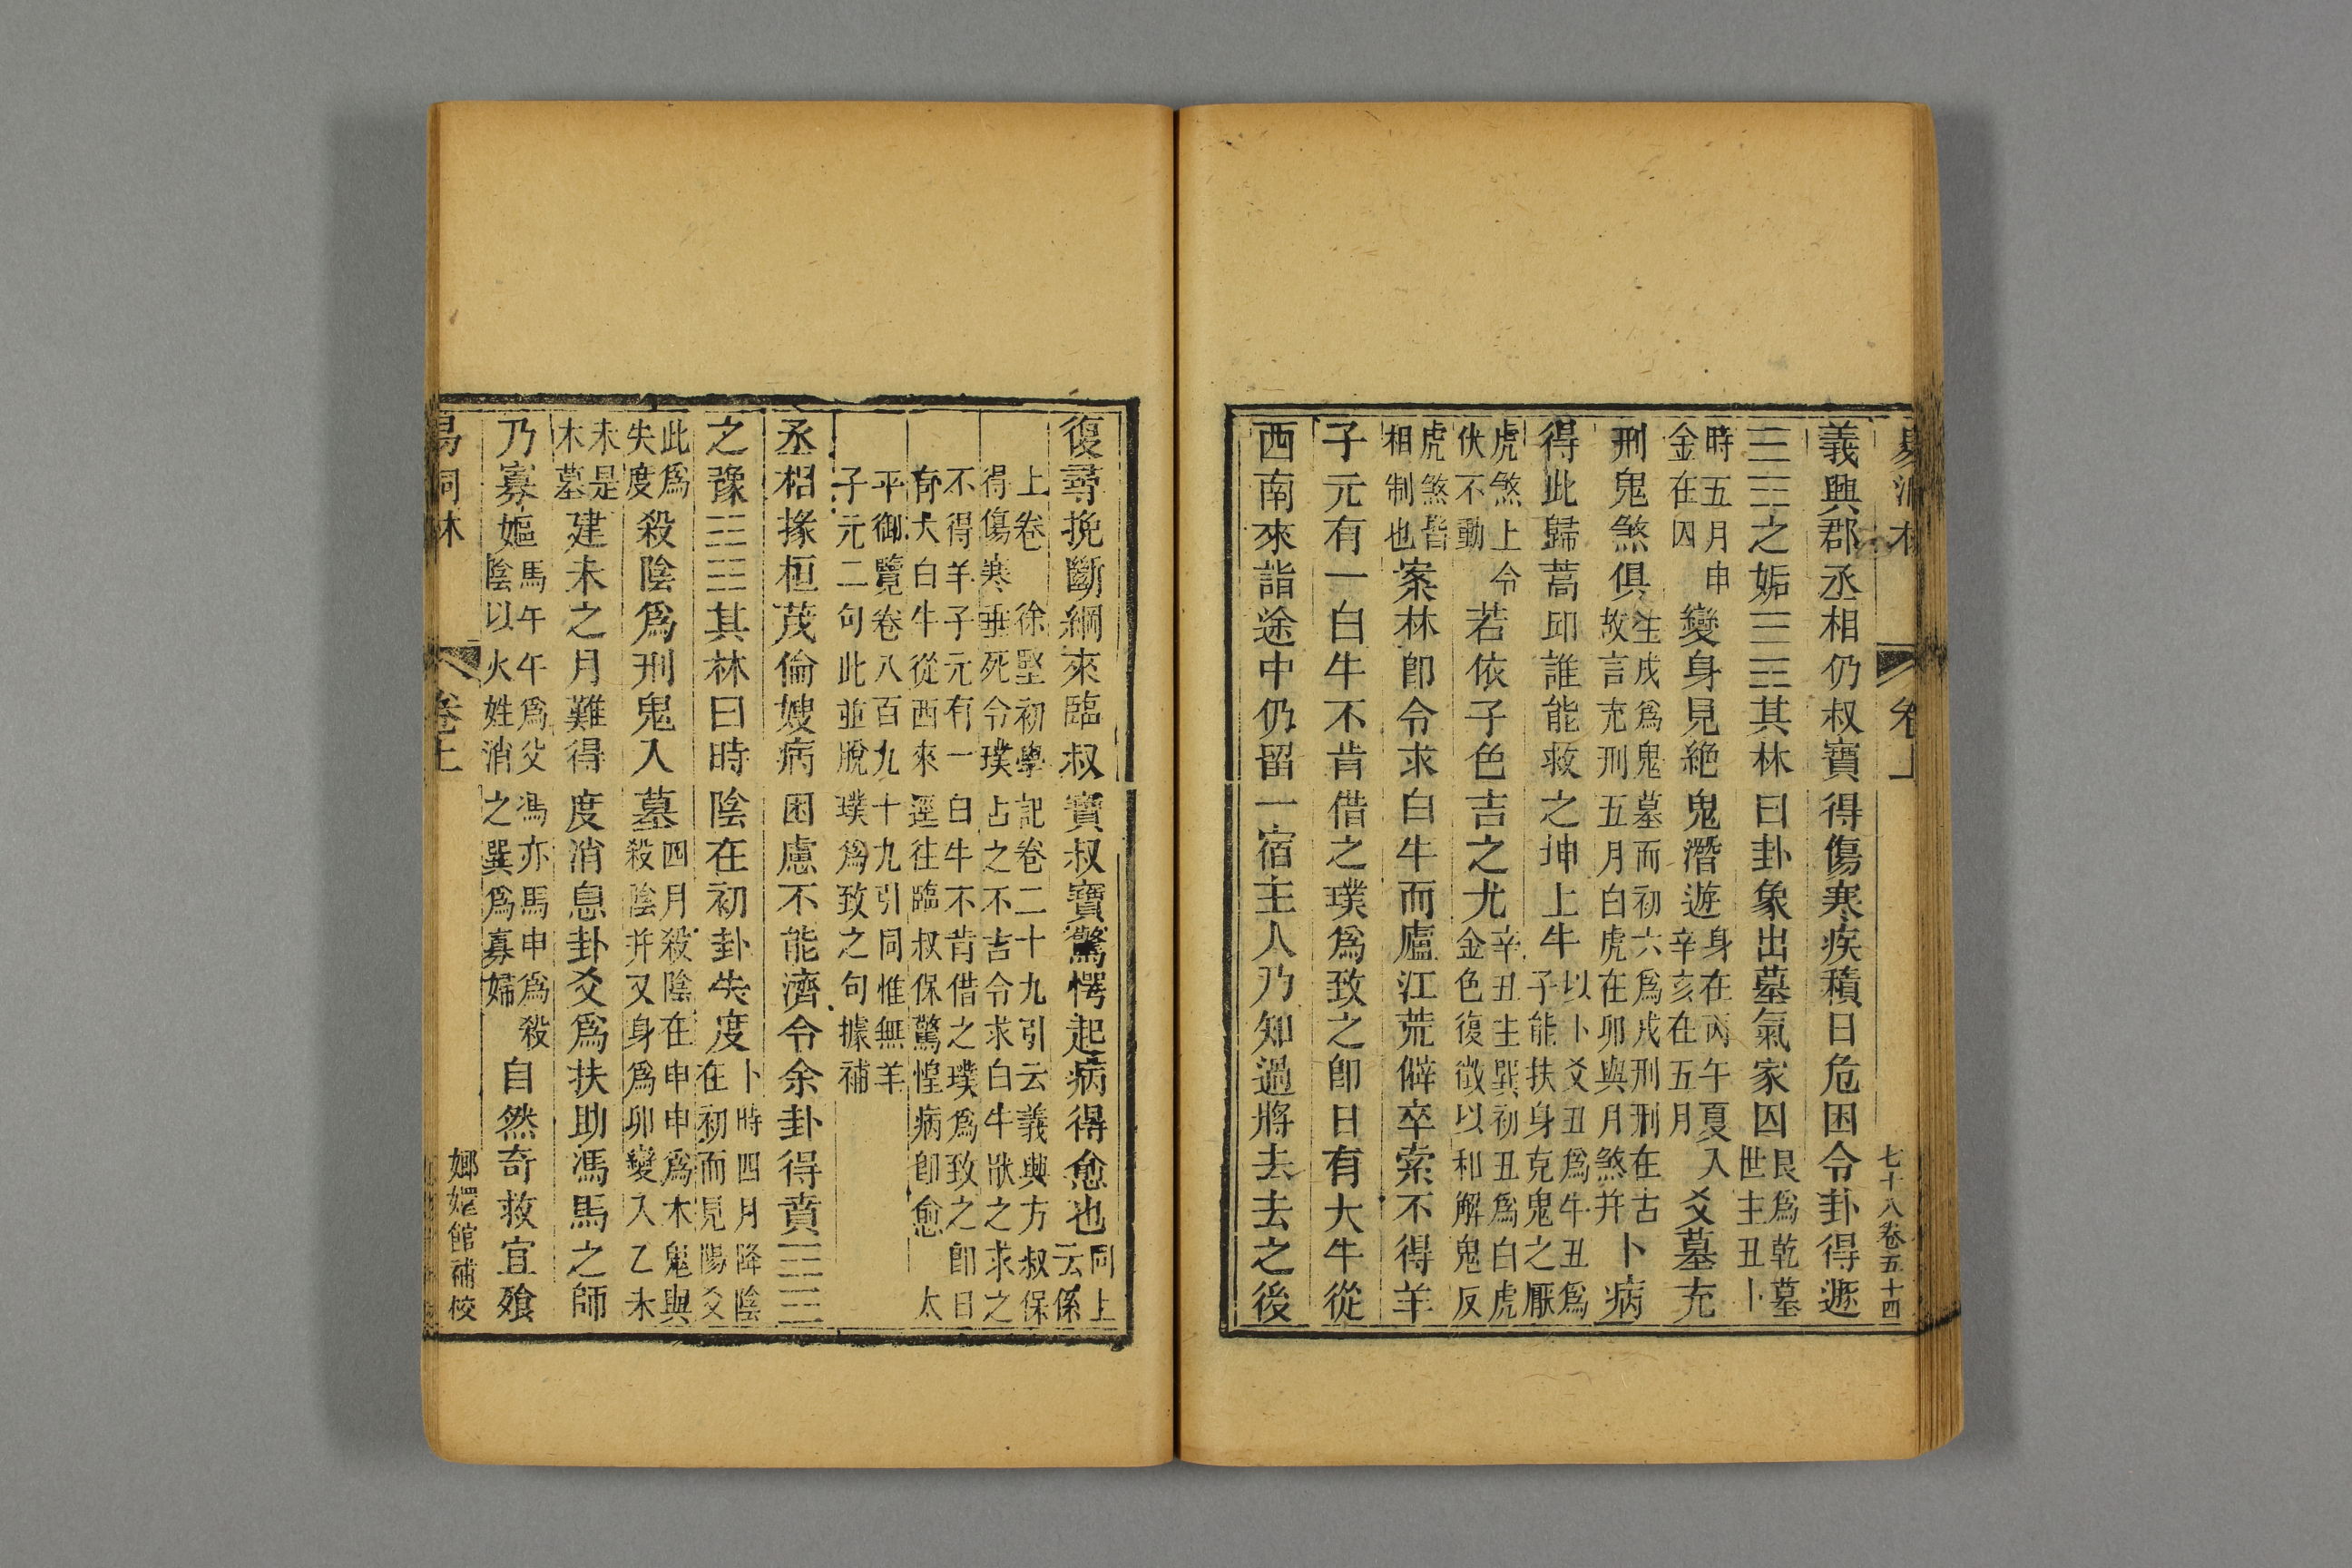 易洞林 卷上 七十八卷五十四
義興郡丞相仍叔寶得傷寒疾積日危困令卦得遯
☰☶之姤☰☴其林曰卦象出墓氣家囚艮爲乾墓世主丑卜
時五月申金在囚變身見絶鬼潛遊身在丙午夏入辛亥在五月爻墓充
刑鬼煞俱生戌爲鬼墓而初六爲戌刑刑在占故言充刑五月白虎在卯與月煞并卜病
得此歸蒿邱誰能救之坤上牛以卜爻丑爲牛丑爲子能扶身克鬼之厭
虎煞上令伏不動若依子色吉之尤辛丑主巽初丑爲白虎金色復徵以和解鬼反
虎煞皆相制也案林卽令求白牛而廬江荒僻卒索不得羊
子元有一白牛不肯借之璞爲致之卽日有大牛從
西南來詣途中仍留一宿主人乃知過將去去之後
復尋挽斷綱來臨叔寶叔寶驚愕起病得愈也同上云係
上卷 徐堅初學記卷二十九引云義興方叔保
得傷寒垂死令璞占之不吉令求白牛猒之求之
不得羊子元有一白牛不肯借之璞爲致之卽日
有大白牛從西來逕往臨叔保驚惶病卽愈 太
平御覽卷八百九十九引同惟無羊
子元二句此並脫璞爲致之句據補
丞相掾桓茂倫嫂病困慮不能濟令余卦得賁☶☲
之豫☳☷其林曰時陰在初卦失度卜時四月降陰在初而見陽爻
此爲失度殺陰爲刑鬼入墓四月殺陰在申申爲木鬼與殺陰并又身爲卯變入乙未
未是木墓建未之月難得度消息卦爻爲扶助馮馬之師
乃寡嫗馬午午爲父馮亦馬申爲殺陰以火姓消之巽爲寡婦自然奇救宜飧
易洞林 卷上 嫏嬛館補校